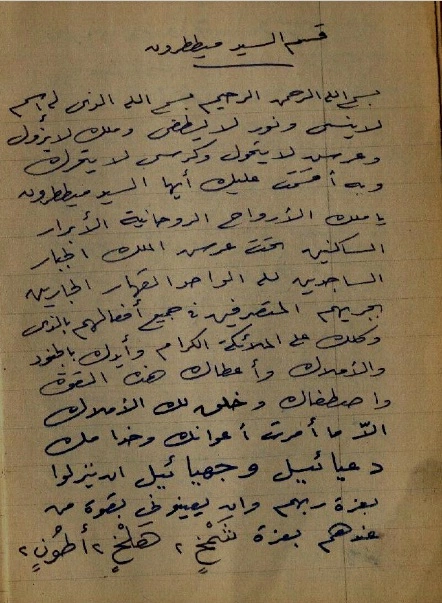 قسم السيد ميططرون
بسم الله الرحمن الرحيم بسم الله الذى له اسم
لا ينسى ونور لا يطفى وملك لا يزول
وعرس لا يتحول وكرسى لا يتحرك
وبه أقسمت عليك أيها السيد ميططرون
يا ملك الأرواح الروحانية الأبرار
الساكنين تحت عرس الملك الجبار
الساجدين لله الواحد القهار الجارين
بجريهم المتصرفين فى جميع أفعالهم بالذى
وكلك على الملائكة الكرام وأيدك بالجنود
والأملاك وأعطاك هذه القوة
واصطفاك وخلق لك الأملاك
الاّ ما أمرت أعوانك وخدامك
دعيائيل وجهيائيل ان ينزلوا
بعزة ربهم وان يعينونى بقوة من
عندهم بعزة شَمْخٍ ٢ هَلْخٍ ٢ أطُونٍ ٢